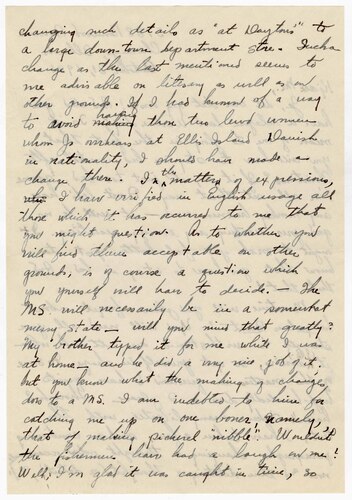 changing such details as "at Dayton's" to
a large down-town department store. Such a
change as the last mentioned seems to
me advisable on literary as well as on
other grounds. If I had known of a way
to avoid having making those two lewd women
whom Jo overhears at Ellis Island Danish
in nationality, I should have made a
change there. In the matter of expressions,
I have verified in English usage all
those which it has occurred to me that
you might question. As to whether you
will find them acceptable on other
grounds, is of course a question which
you yourself will have to decide. — The
MS. will necessarily be in a somewhat
messy state — will you mind that greatly?
My brother typed it for me while I was
at home — and he did a very nice job of it,
but you know what the making of changes
does to a MS. I am indebted to him for
catching me up on one boner, namely,
that of making pickerel "nibble"! Wouldn't
the fishermen have had a laugh on me!
Well, I'm glad it was caught in time, so